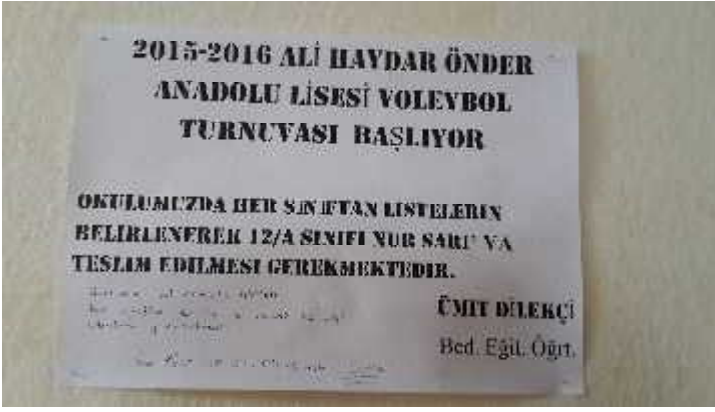 2015-2016 ALİ HAYDAR ÖNDER
ANADOLU LİSESİ VOLEYBOL
TURNUVASI BAŞLIYOR
OKULUMUZDA HER SINIFTAN LISTELERIN
BELIRLENEREK 12/A SINIFI NUR SARI' YA
TESLIM EDILMESI GEREKMEKTEDIR.
ÜMİT DİLEKÇİ
Bed. Eğit. Öğrt.